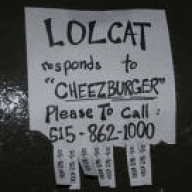 LOLCAT
responds to
"CHEEZBURGER"
Please To Call :
615-862-1000